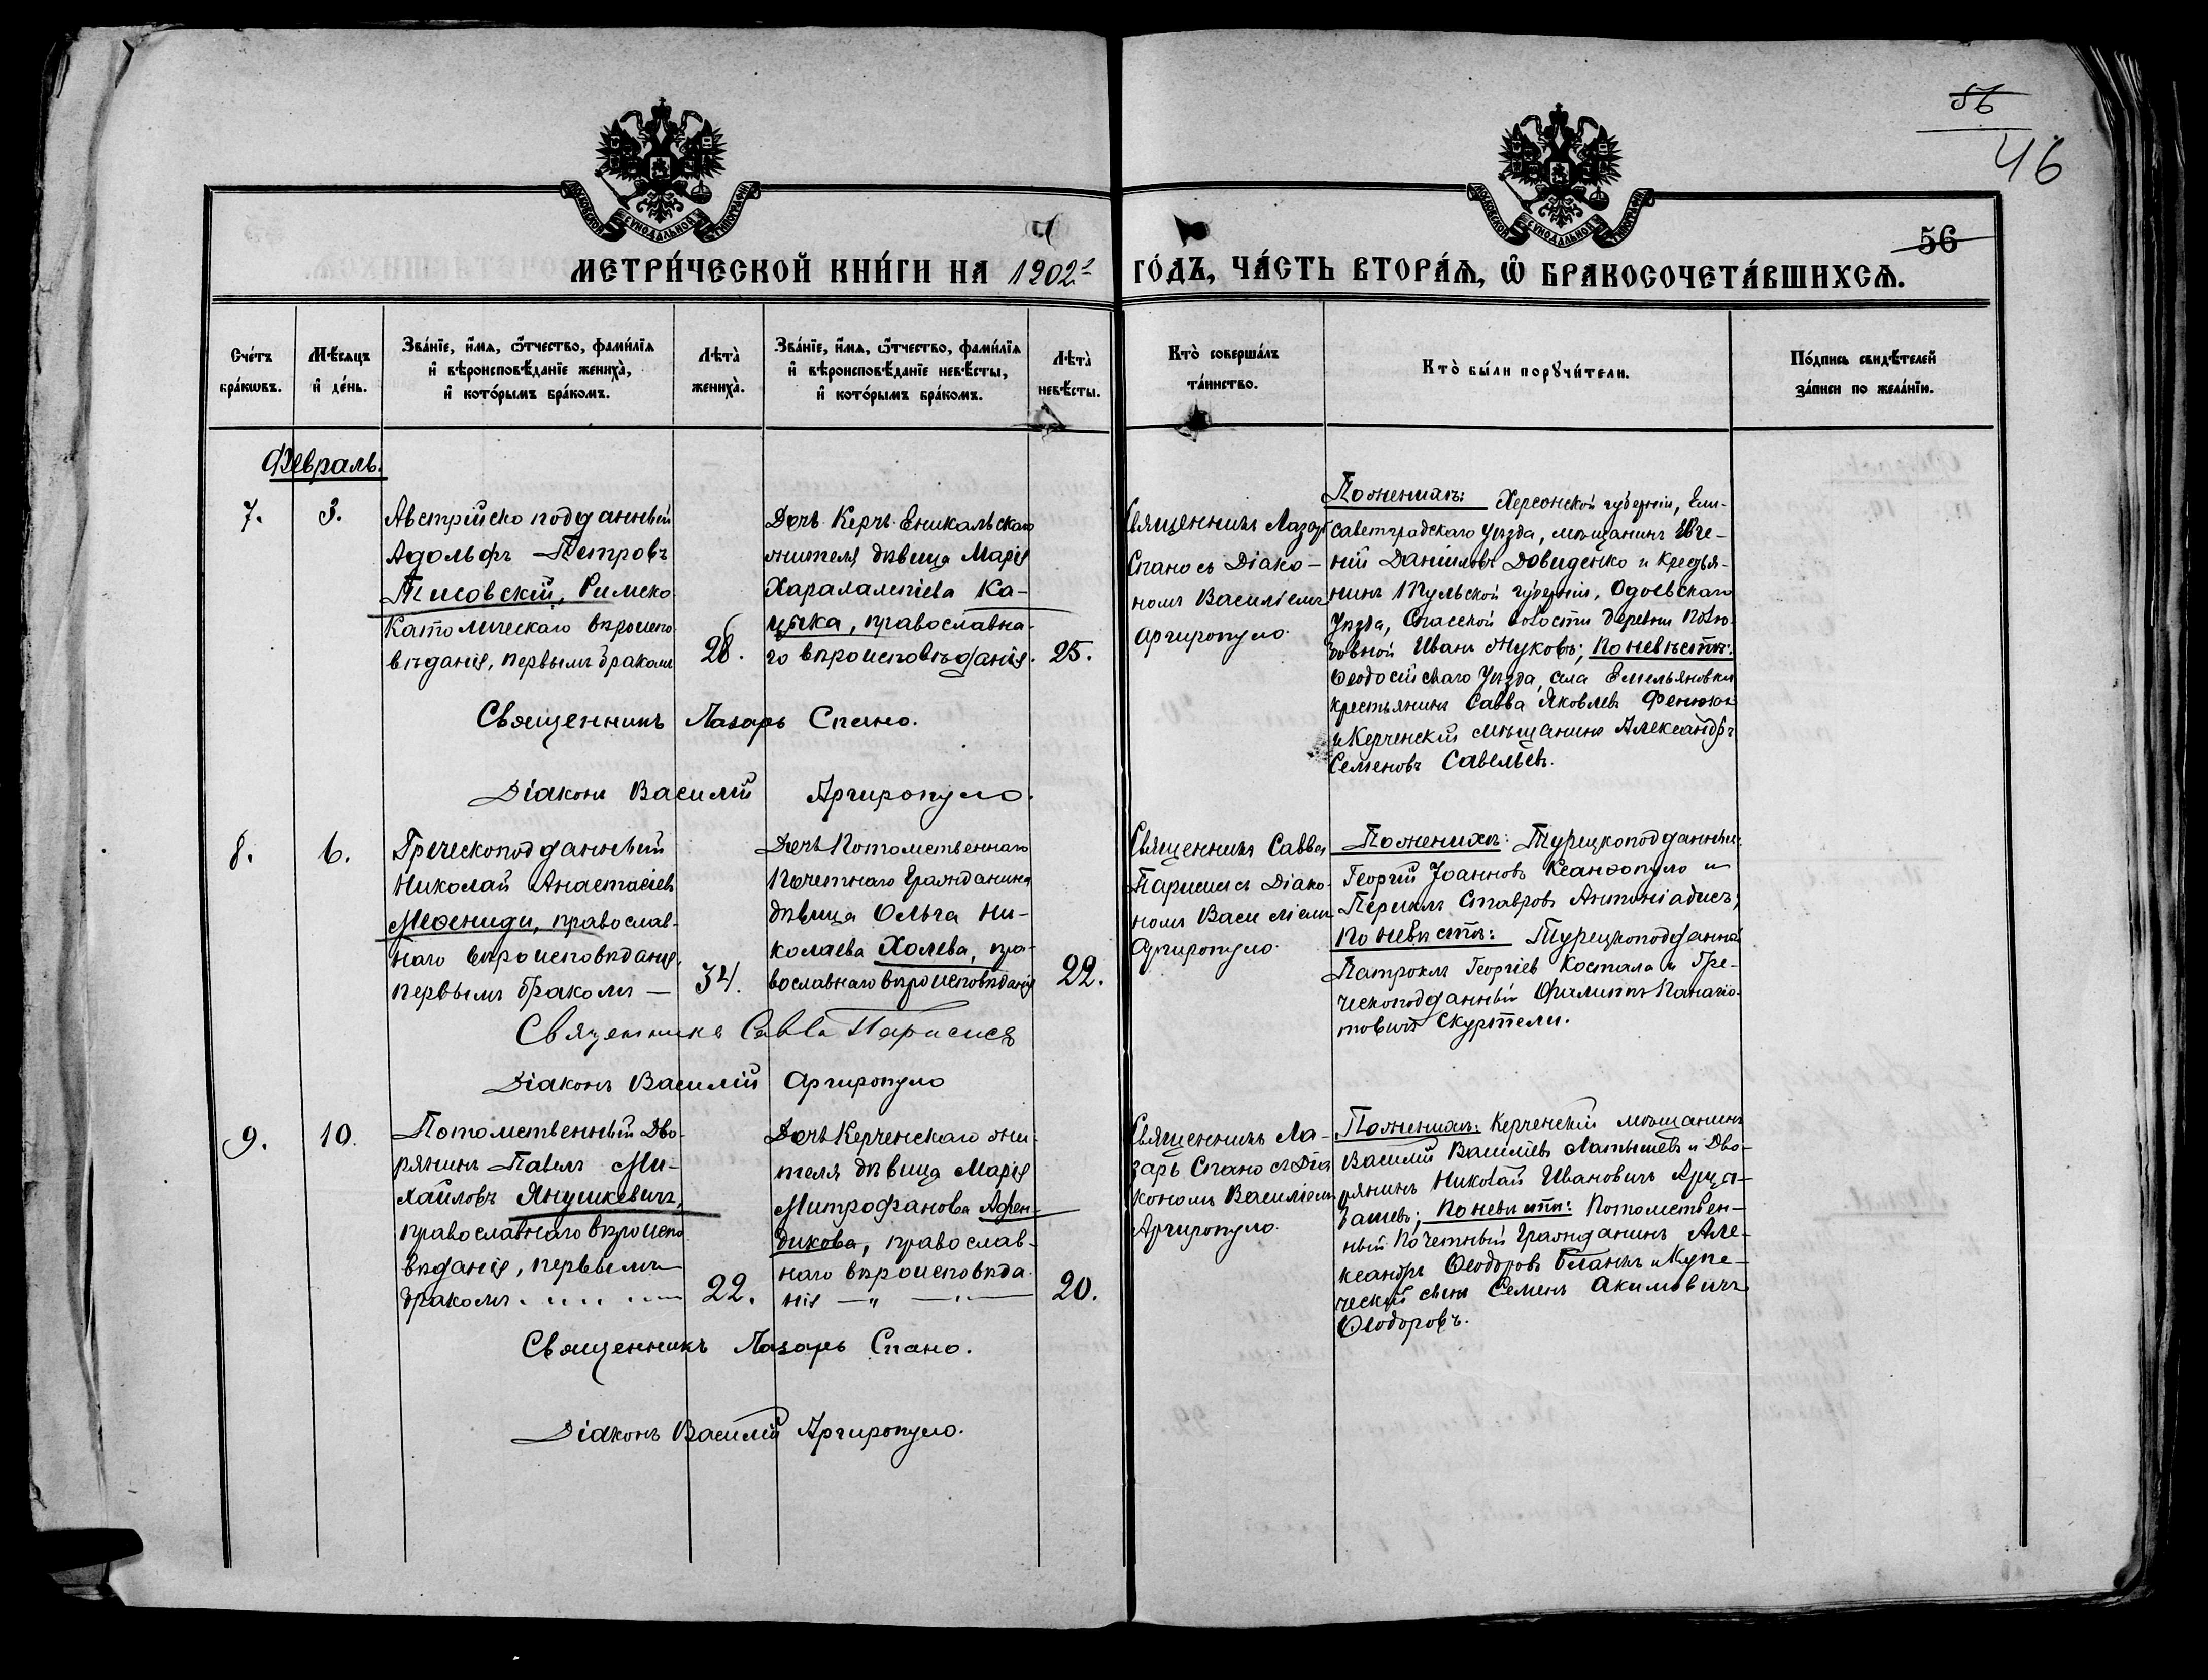 56
46
МОСКОВСКОЙ СУНОДАЛЬНОЙ ТИПОГРАФІИ
МОСКОВСКОЙ СУНОДАЛЬНОЙ ТИПОГРАФІИ
56
МЕТРИ́ЧЕСКОЙ КНИ́ГИ НА 1902 г
ГО́ДЪ, ЧА́СТЬ ВТОРА́Ѧ, Ѽ БРАКОСОЧЕТА́ВШИХСѦ.
Сче́тъ
бра́кѡвъ.
Мѣ́сѧцъ
и҆ де́нь.
Зва́нїе, и҆́мѧ, ѻ҆́тчество, фами́лїѧ
и҆ вѣроисповѣ́данїе жениха̀,
и҆ кото́рымъ бра́комъ.
Лѣта̀
жениха̀.
Зва́нїе, и҆́мѧ, ѻ҆́тчество, фами́лїѧ
и҆ вѣроисповѣ́данїе невѣ́сты,
и҆ кото́рымъ бра́комъ.
Лѣта̀
невѣ́сты.
Кто̀ соверша́лъ
та́инство.
Кто̀ бы́ли порꙋчи́тели.
По́дпись свидѣ́телей
за́писи по жела́нїю.
Февраль.
7.
3.
Австрійско подданный
Адольфъ Петровъ
Тисовскій, Римско
Католическаго вѣроиспо
вѣданія, первымъ бракомъ
28.
Дочь Керчь-Еникальскаго
жителя дѣвица Марія
Харалампіева Ка-
цика, православна-
го вѣроисповѣданія.
25.
Священникъ Лазарь
Спано съ Діако-
номъ Василіемъ
Аргиропуло.
По женихѣ: Херсонской губерніи, Ели-
саветградскаго Уѣзда, мѣщанинъ Евге-
ній Даніиловъ Довиденко и Крестья-
нинъ Тульской губерніи, Одоевскаго
Уѣзда, Спасской волости деревни
Иванъ Жуковъ; по невѣстѣ:
Ѳеодосійскаго Уѣзда, села Емельяновки
крестьянинъ Савва Яковлевъ Фенюкъ
и Керченскій мѣщанинъ Александръ
Семеновъ Савельевъ.
Священникъ Лазарь Спано.
Діаконъ Василій Аргиропуло.
8.
6.
Греческоподданный
Николай Анастасіевъ
православ-
наго вѣроисповѣданія,
первымъ бракомъ —
34.
Дочь Потомственнаго
Почетнаго Гражданина
дѣвица Ольга Ни-
колаева Холева, пра-
вославнаго вѣроисповѣданія
22.
Священникъ Савва
Парисисъ съ Діако-
номъ Василіемъ
Аргиропуло.
По женихѣ: Турецкоподданные:
Георгій Іоанновъ Ксанѳопуло и
Периклъ Ставровъ Антоніадисъ;
По невѣстѣ: Турецкоподданный
Патроклъ Георгіев Костала и Гре-
ческоподданный Филиппъ Панагіо-
товичъ Скуртели.
Священникъ Савва Парисисъ
Діаконъ Василій Аргиропуло
9.
10.
Потомственный Дво-
рянинъ Павелъ Ми-
хайловъ Янушкевичъ,
православнаго вѣроиспо
вѣданія, первымъ
бракомъ
22.
Дочь Керченскаго жи-
теля дѣвица Марія
Митрофанова Афен-
дикова, православ-
наго вѣроисповѣда-
нія — " —
20.
Священникъ Ла-
зарь Спано съ Діа
кономъ Василіемъ
Аргиропуло.
По женихѣ: Керченскій мѣщанинъ
Василій Василіевъ Латышевъ и Дво-
рянинъ Николай Ивановичъ
по невѣстѣ: Потомствен-
ный Почетный Гражданинъ Але-
ксандръ Ѳеодоровъ Бланкъ и Купе-
ческій сынъ Семенъ Акимовичъ
Ѳеодоровъ.
Священникъ Лазарь Спано.
Діаконъ Василій Аргиропуло.